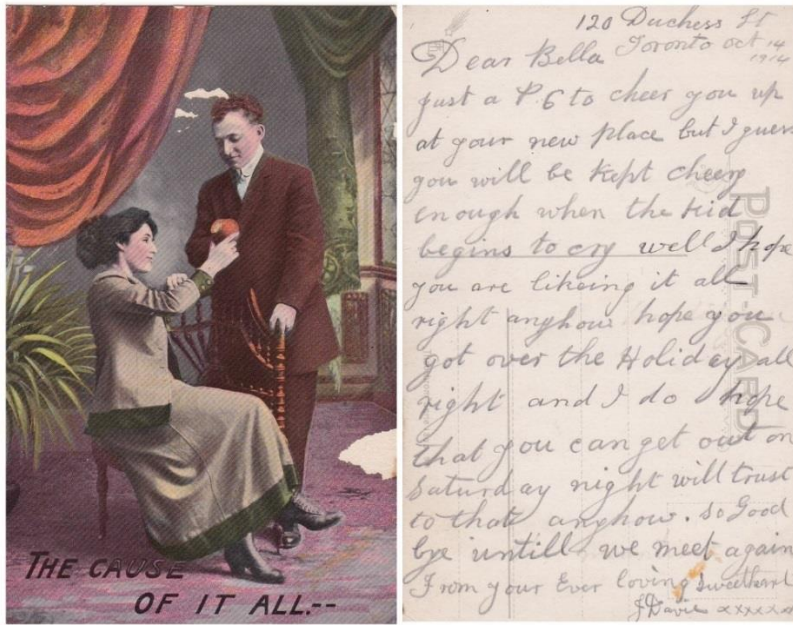 THE CAUSE
OF IT ALL.--
120 Duchess St
Toronto Oct 14
1914
Dear Bella
just a P.C to cheer you up
at your new place but I guess
you will be kept cheery
enough when the kid
begins to cry well I hope
you are likeing it all
right anyhow hope you
got over the Holiday all
right and I do hope
that you can get out on
Saturday night will trust
to that anyhow. so Good
bye untill we meet again
From your Ever loving sweetheart
J Davis xxxxxx
POST CARD